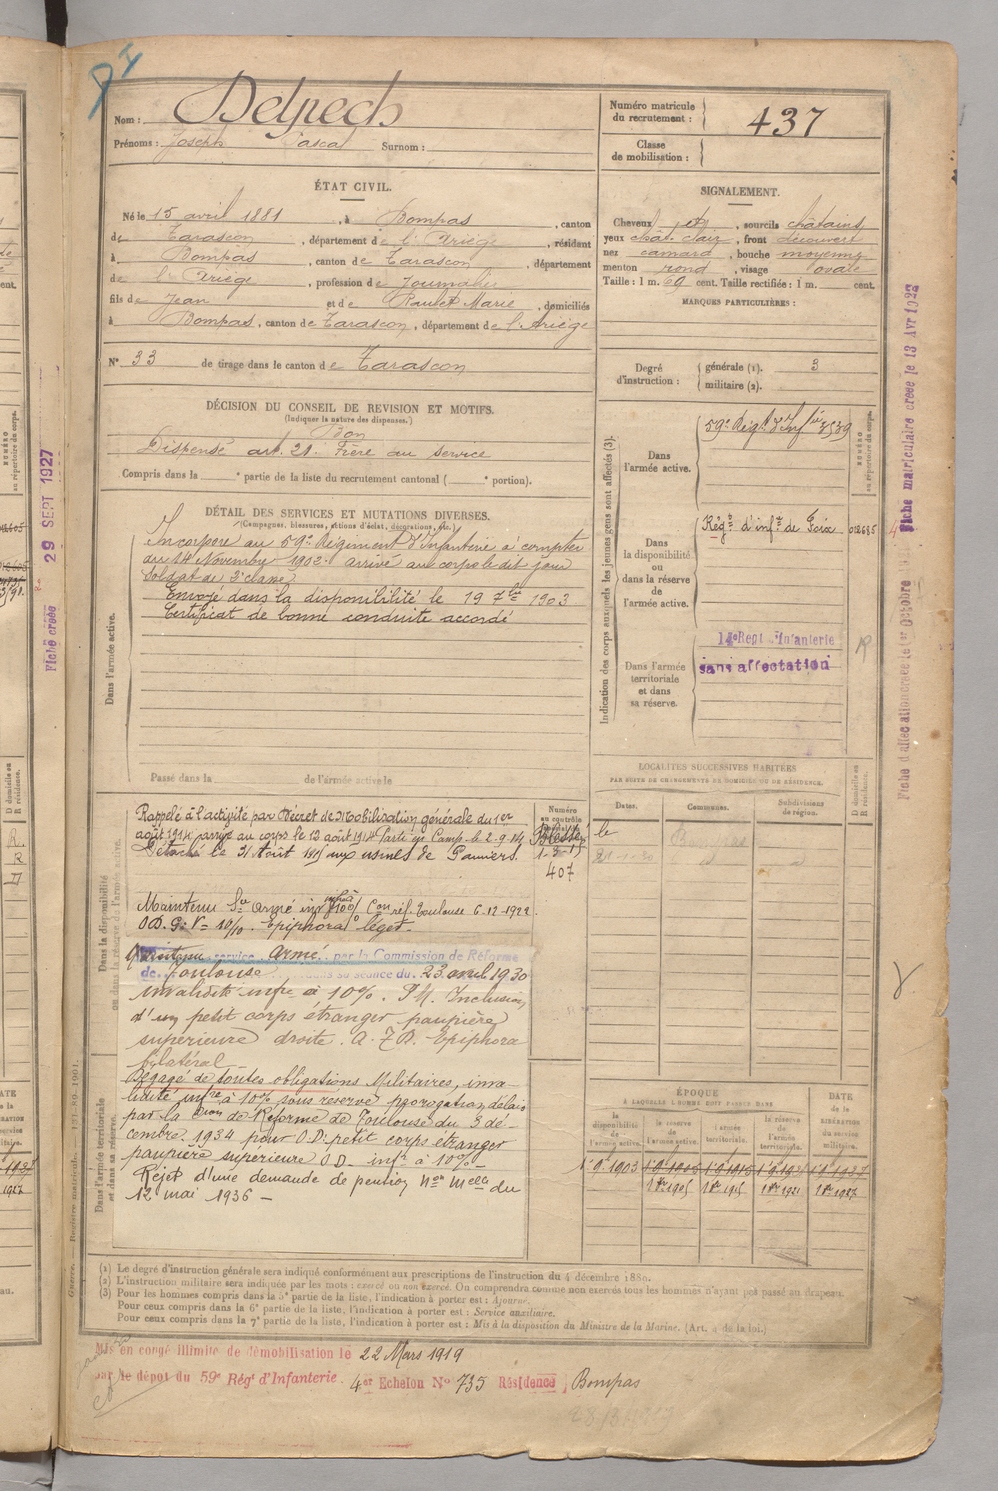 Nom : Delpech
Prénoms : Joseph Pascal Surnom :
Numéro matricule du recrutement : 437
Classe de mobilisation :
ÉTAT CIVIL.
Né le 15 avril 1881, à Bompas, canton
de Tarascon, département de l'Ariège, résidant
à Bompas, canton de Tarascon, département
de l'Ariège, profession de Journalier
fils de Jean et de Raulet Marie, domiciliés
à Bompas, canton de Tarascon, département de l'Ariège
N° 33 de tirage dans le canton de Tarascon
SIGNALEMENT.
Cheveux et, sourcils châtains
yeux chât. clair, front découvert
nez camard, bouche moyenne
menton rond, visage ovale
Taille : 1 m. 69 cent. Taille rectifiée : 1 m. cent.
MARQUES PARTICULIÈRES :
Degré d'instruction : générale (1). 3
militaire (2).
DÉCISION DU CONSEIL DE REVISION ET MOTIFS.
(Indiquer la nature des dispenses.)
Bon
Dispensé art. 21. Frère au service
Compris dans la e partie de la liste du recrutement cantonal ( e portion).
DÉTAIL DES SERVICES ET MUTATIONS DIVERSES.
(Campagnes, blessures, actions d'éclat, décorations, etc.)
Dans l'armée active.
Incorporé au 59e Régiment d'Infanterie à compter
du 14 Novembre 1902. arrivé au corps le dit jour
Soldat de 2e classe
Envoyé dans la disponibilité le 19 7bre 1903
Certificat de bonne conduite accordé
Passé dans la de l'armée active le
Indication des corps auxquels les jeunes gens sont affectés (3).
NUMÉRO au répertoire du corps.
Dans l'armée active.
59e Régt d'Infie 3539
Dans la disponibilité ou dans la réserve de l'armée active.
Régt d'infie de Foix
Dans l'armée territoriale et dans sa réserve.
Regt Infanterie
sans affectation
LOCALITÉS SUCCESSIVES HABITÉES
PAR SUITE DE CHANGEMENTS DE DOMICILE OU DE RÉSIDENCE.
Dates. Communes. Subdivisions de région.
D domicile ou R résidence.
Bompas
Dans la disponibilité ou dans la réserve de l'armée active.
Rappelé à l'activité par Décret de Mobilisation générale du 1er
août 1914. arrivé au corps le 12 août 1914. Parti en Camp. le 2-9-14
Détaché le 31 Août 1915 aux usines de Pamiers.
Blessé le
407
Maintenu Sce armé inv infre à 10% Con réf. Toulouse 6-12-1922
OD. G: V= 10/10. Epiphora léger.
Maintenu service Armé par la Commission de Réforme
de Toulouse dans sa séance du 23 avril 1930
invalidité infre à 10%. PM. Inclusion
d'un petit corps étranger paupière
supérieure droite. Epiphora
bilatéral
Dégagé de toutes obligations Militaires, inva-
lidité infre à 10% sous réserve prorogation délais
par la Con de Réforme de Toulouse du 3 dé-
cembre 1934 pour O.D. petit corps étranger
paupière supérieure OD. infr à 10%
Rejet d'une demande de pension du
12 mai 1936
Dans l'armée territoriale et dans sa réserve.
ÉPOQUE
À LAQUELLE L'HOMME DOIT PASSER DANS
la disponibilité de l'armée active. la réserve de l'armée active. l'armée territoriale. la réserve de l'armée territoriale.
DATE de la LIBÉRATION du service militaire.
1.9.1903
(1) Le degré d'instruction générale sera indiqué conformément aux prescriptions de l'instruction du 4 décembre 1889.
(2) L'instruction militaire sera indiquée par les mots : exercé ou non exercé. On comprendra comme non exercés tous les hommes n'ayant pas passé au drapeau.
(3) Pour les hommes compris dans la 5e partie de la liste, l'indication à porter est : Ajourné.
Pour ceux compris dans la 6e partie de la liste, l'indication à porter est : Service auxiliaire.
Pour ceux compris dans la 7e partie de la liste, l'indication à porter est : Mis à la disposition du Ministre de la Marine. (Art. 4 de la loi.)
Mis en congé illimité de démobilisation le 22 Mars 1919
par le dépôt du 59e Régt d'Infanterie. 4er Echelon No 735 Résidence Bompas
Fiche matriculaire créée le 13 Avr 1922
Fiche créée 29 SEPT 1927